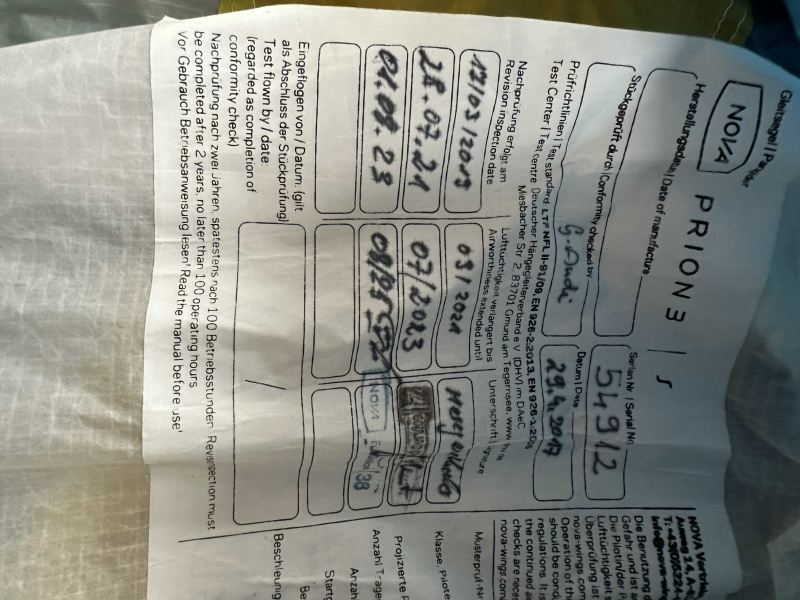 Gleitsegel | Paraglider
NOVA PRION 3 | S
Herstellungsdatum | Date of manufacture
Serien Nr. | Serial No.
54912
Stückgeprüft durch | Conformity checked by
Datum | Date
29.4.2017
Prüfrichtlinien | Test standard: LTF NFL II-91/09, EN 926-2:2013, EN 926-1:2006
Test Center | Test centre: Deutscher Hängegleiterverband e.V. (DHV) im DAeC
Miesbacher Str. 2, 83701 Gmund am Tegernsee, www
Nachprüfung erfolgt am
Revision inspection date
Lufttüchtigkeit verlängert bis
Airworthiness extended until
Unterschrift | Signature
03/2019
03/2021
28.07.21
07/2023
01.08.23
08/25
NOVA
38
Eingeflogen von / Datum: (gilt
als Abschluss der Stückprüfung)
Test flown by / date
(regarded as completion of
conformity check)
/
Nachprüfung nach zwei Jahren, spätestens nach 100 Betriebsstunden. Reinspection must
be completed after 2 years, no later than 100 operating hours
Vor Gebrauch Betriebsanweisung lesen! Read the manual before use!
NOVA Vertrie
Auweg 14, A-6
T: +43(0)5224-
info@nova-wing
Die Benutzung
Gefahr und ist a
Die Pilotin/der P
Lufttüchtigkeit
Überprüfung ist
nova-wings.com
Operation of th
should be cond
regulations. It is
the continued ai
checks are nece
nova-wings.com
Musterprüf-Nr
Klasse, Pilote
Projizierte F
Anzahl Trage
Anzahl
Startg
Be
Beschleunig